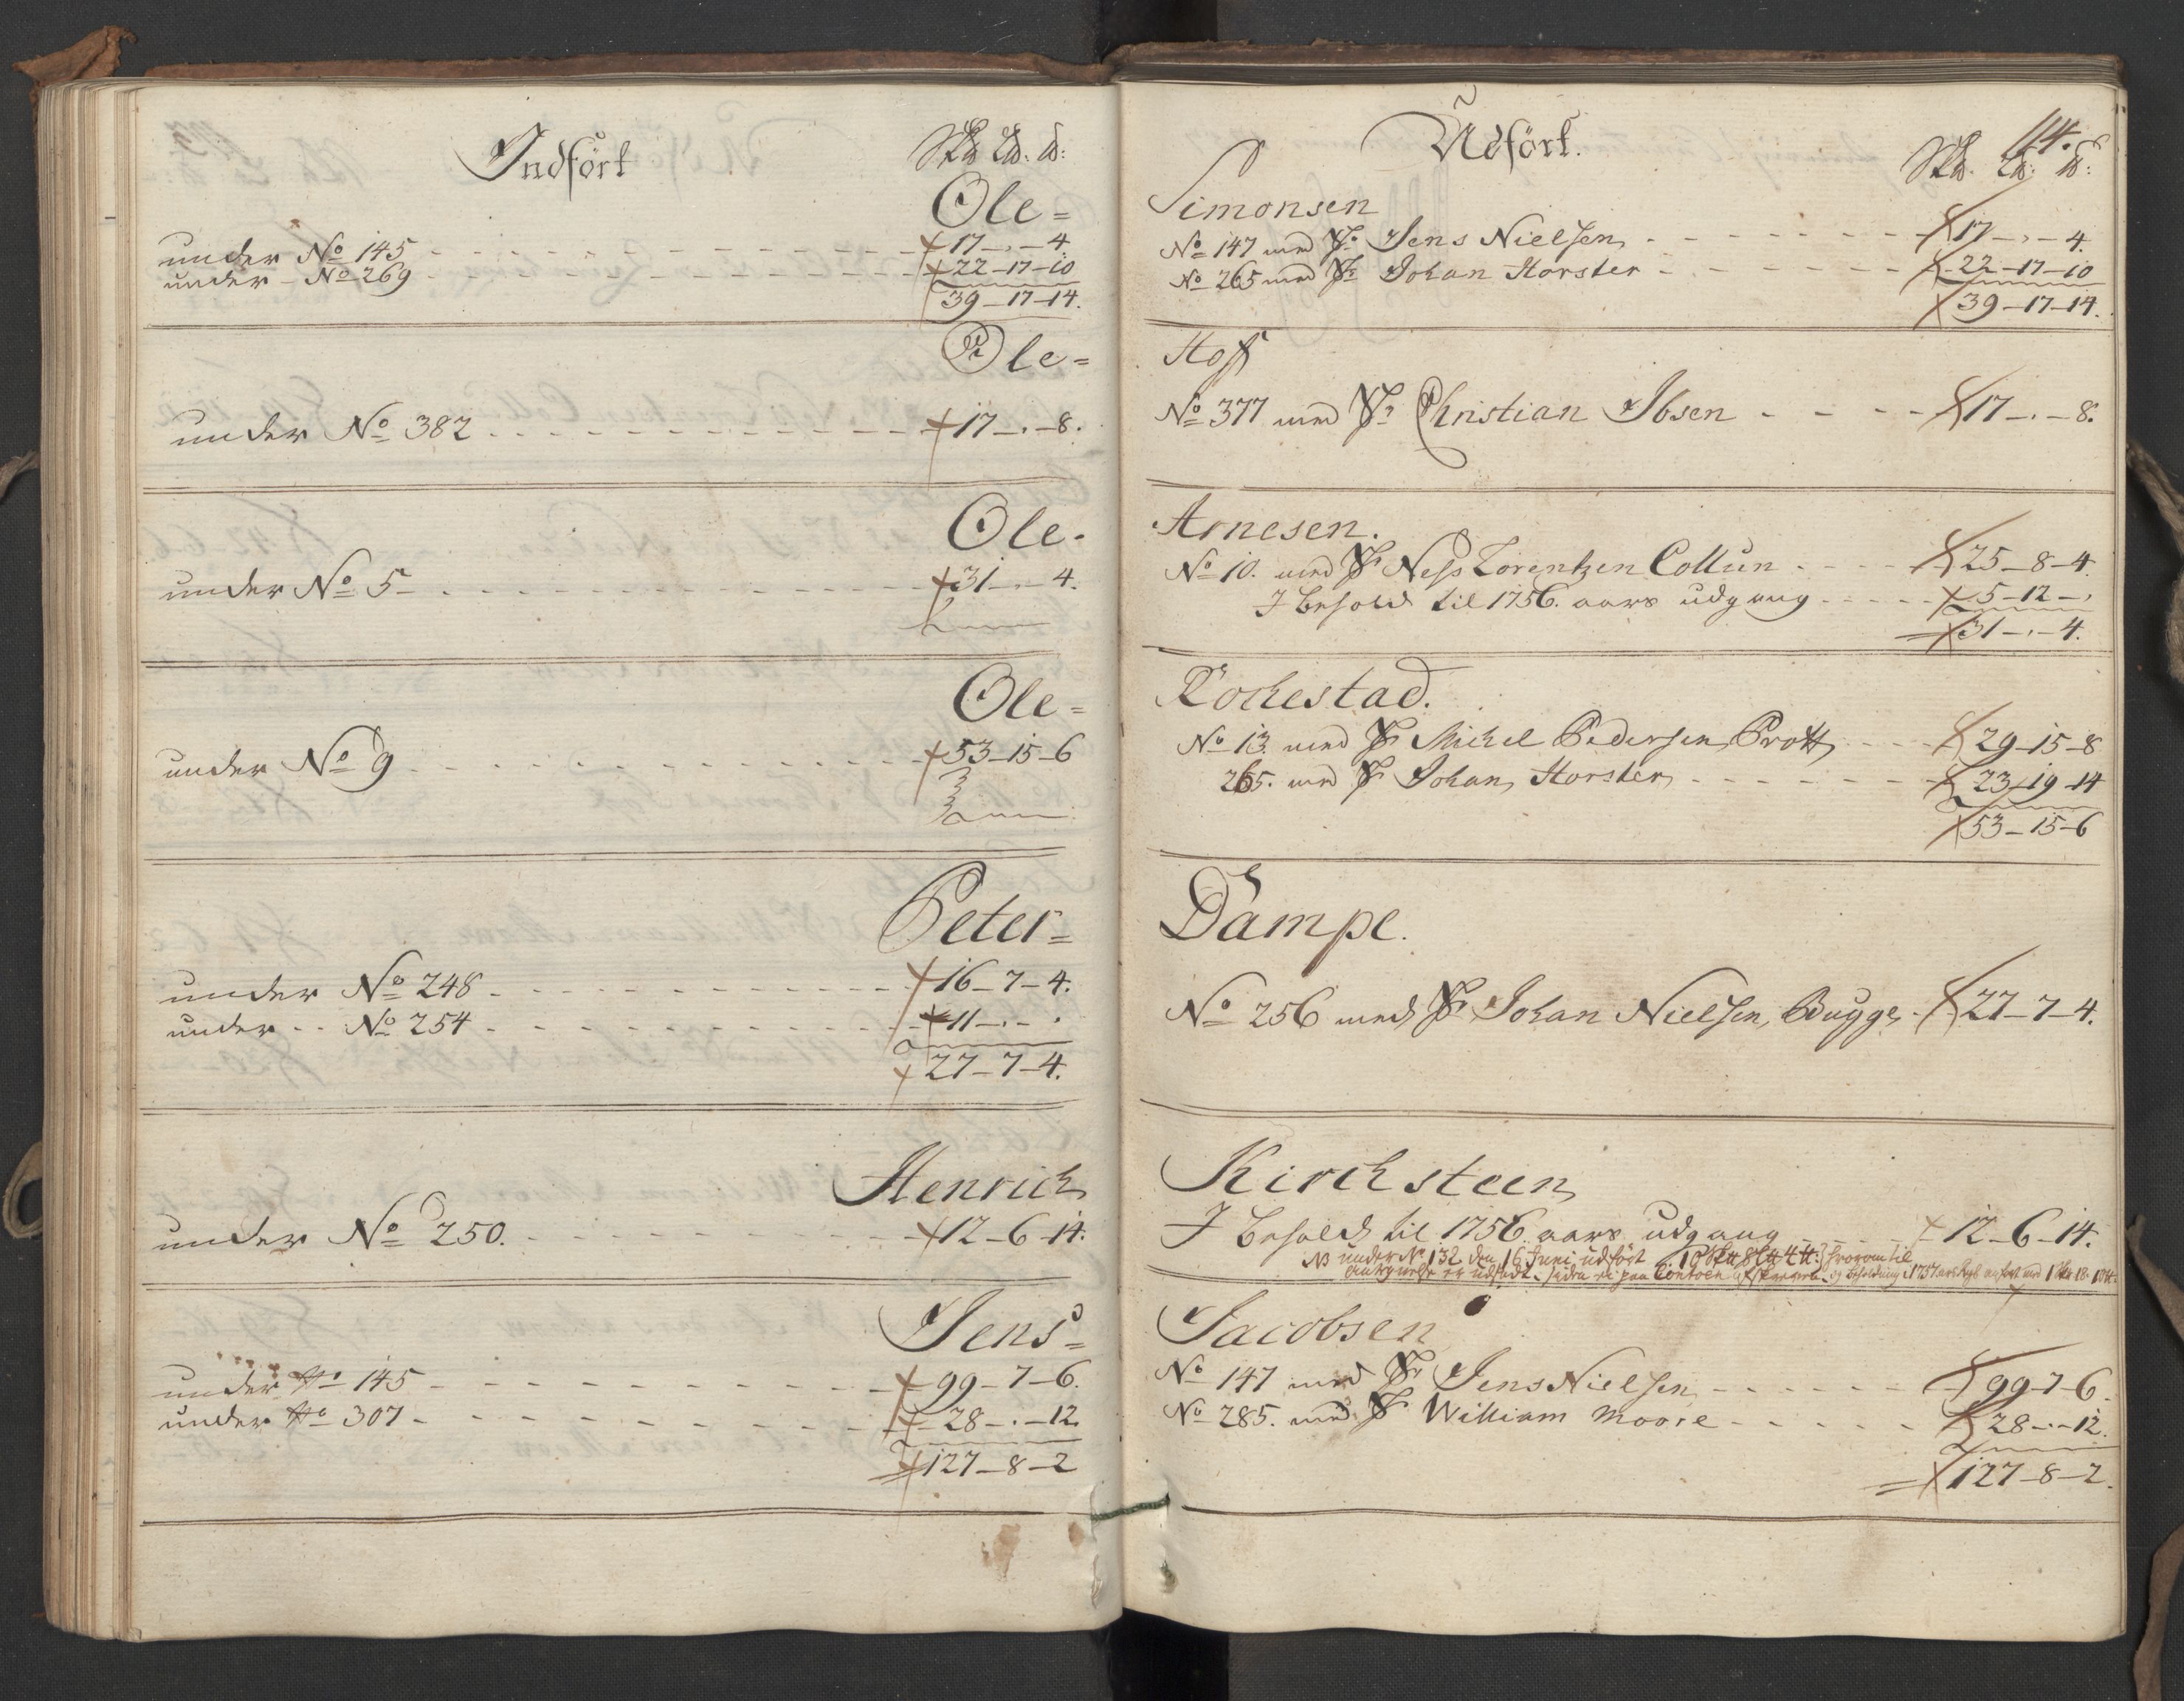 Indført
Sk℔ L℔. ℔:
Ole=
under No 145 - 17 - . - 4
under - No 269 - 22 - 17 - 10
39 - 17 - 14.
Ole=
under No 382 - 17 - . - 8.
Ole.
under No 5 - 31 - . - 4.
Ole=
under No 9 - 53 - 15 - 6
Peter=
under No 248 - 16 - 7 - 4.
under - No 254 - 11 - . - .
27 - 7 - 4.
Henrich
under No 250. - 12 - 6 - 14.
Jens=
under No 145 - 99 - 7 - 6.
under No 307 - 28 - . - 12.
127 - 8 - 2
Udført.
114.
Sk℔. L℔: ℔:
Simonsen
No 147 med Sr Jens Nielsen - 17 - . - 4.
No 265 med Sr Johan Horster - 22 - 17 - 10
39 - 17 - 14.
Hoff
No 377 med Sr Christian Ibsen - 17 - . - 8.
Arnesen.
No 10. med Sr Ness Lorentzen Collun - 25 - 8 - 4.
I behold til 1756. aars udgang - 5 - 12 - .
31 - . - 4.
Rochestad.
No 13. med Sr Michel Pedersen Prott - 29 - 15 - 8
265. med Sr Johan Horster - 23 - 19 - 14
53 - 15 - 6
Dampe.
No 256 med Sr Johan Nielsen Bugge - 27 - 7 - 4.
Kirchsteen
I behold til 1756 aars udgang - 12 - 6 - 14.
NB under No 132 den 16 Juni udført 10 Sk℔ 8 L℔ 4 ℔: hvorom til
er udstædt, siden ei paa Contoen og beholdning 1757
Jacobsen
No 147 med Sr Jens Nielsen - 99 - 7 - 6.
No 285. med Sr William Moore - 28 - . - 12.
127 - 8 - 2.